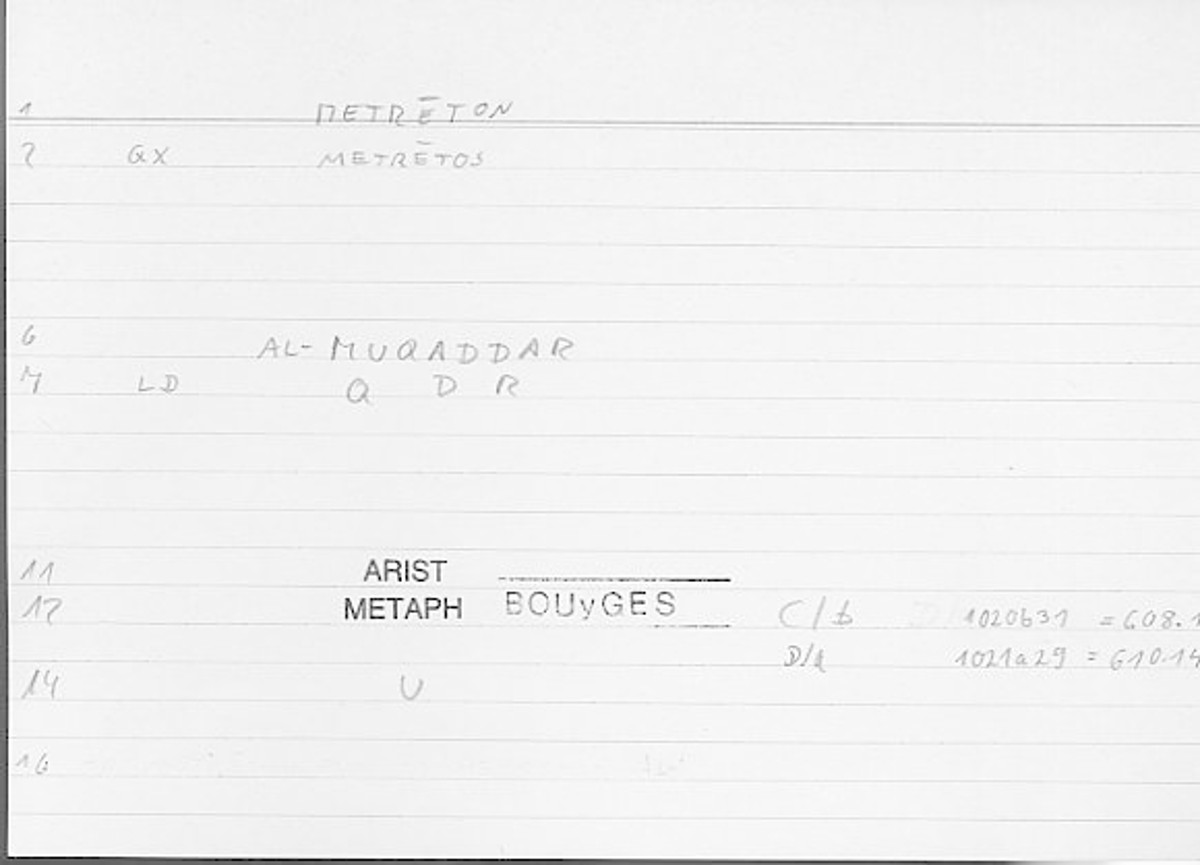 1 METRĒTON
2 GX METRĒTOS
6 AL-MUQADDAR
7 LD Q D R
11 ARIST
12 METAPH BOUyGES C/b 1020b31 =608.1
D/a 1021a29 = 610.14
14 U
16